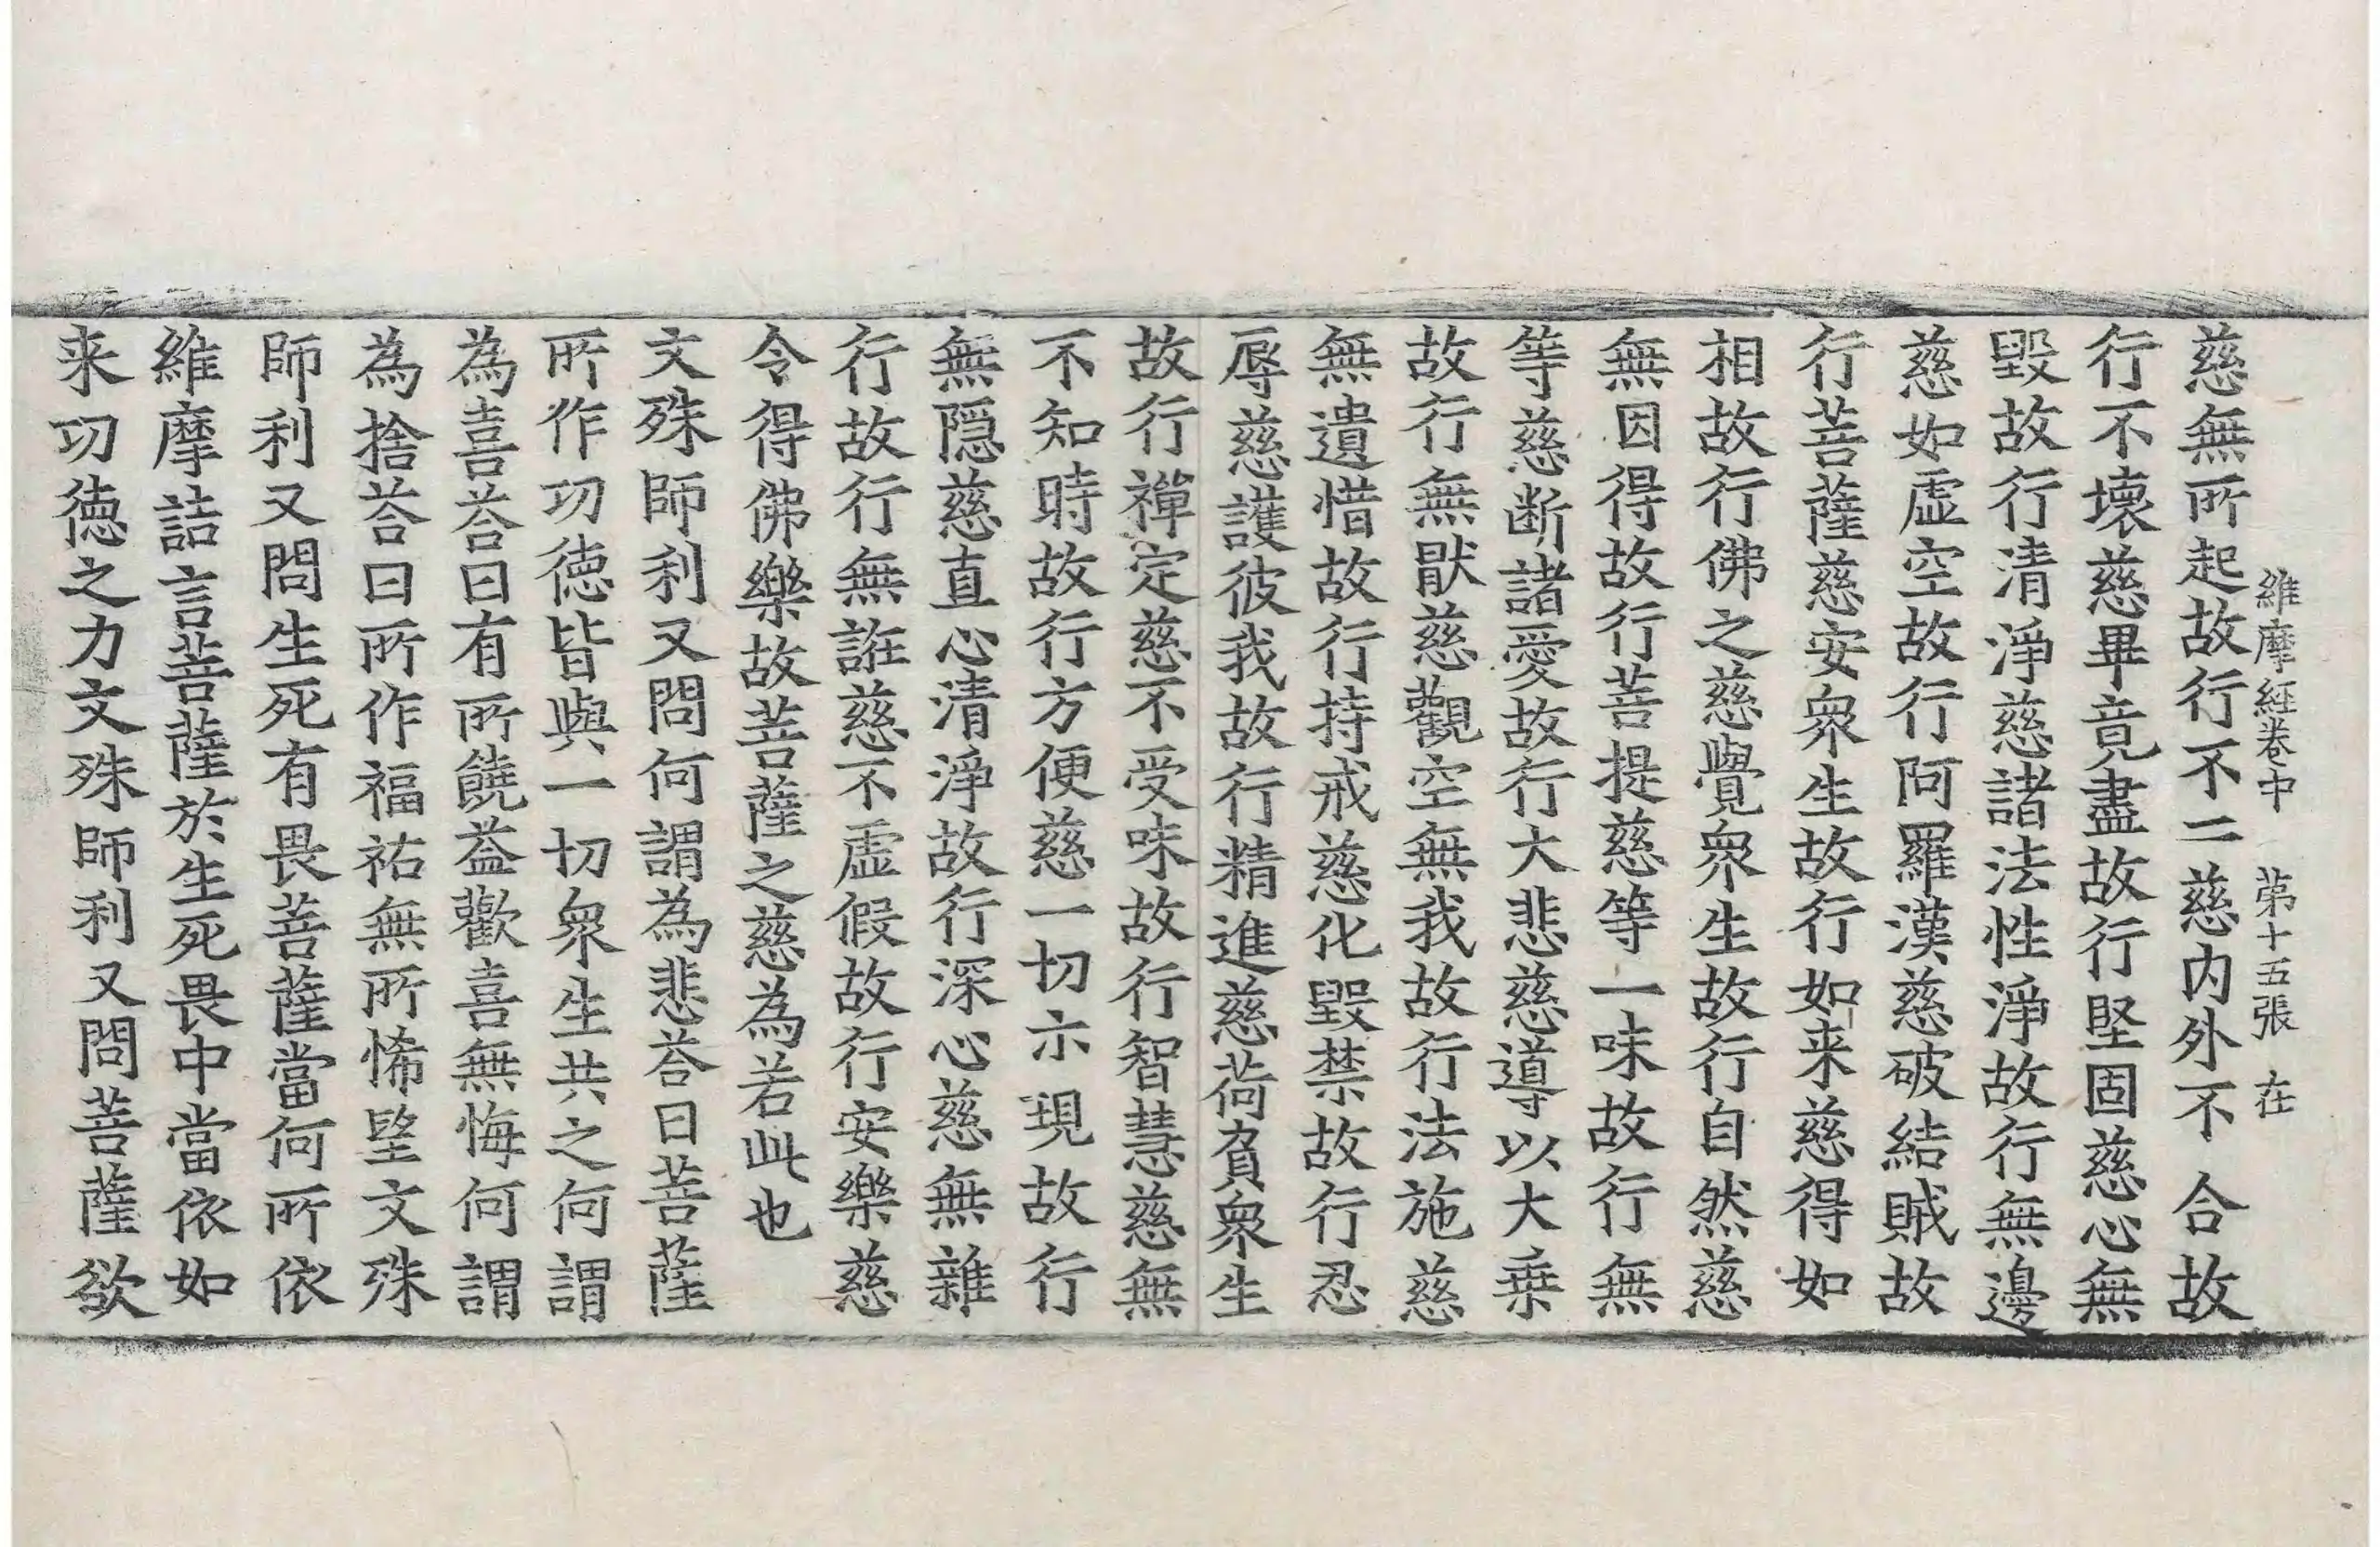 維摩經卷中　第十五張　在
慈無所起故行不二慈内外不合故
行不壞慈畢竟盡故行堅固慈心無
毀故行清淨慈諸法性淨故行無邊
慈如虛空故行阿羅漢慈破結賊故
行菩薩慈安衆生故行如来慈得如
相故行佛之慈覺衆生故行自然慈
無因得故行菩提慈等一味故行無
等慈断諸愛故行大悲慈導以大乗
故行無猒慈觀空無我故行法施慈
無遺惜故行持戒慈化毀禁故行忍
辱慈護彼我故行精進慈荷負衆生
故行禪定慈不受味故行智慧慈無
不知時故行方便慈一切示現故行
無隠慈直心清淨故行深心慈無雜
行故行無誑慈不虛假故行安樂慈
令得佛樂故菩薩之慈為若此也
文殊師利又問何謂為悲荅曰菩薩
所作功徳皆與一切衆生共之何謂
為喜荅曰有所饒益歡喜無悔何謂
為捨荅曰所作福祐無所悕望文殊
師利又問生死有畏菩薩當何所依
維摩詰言菩薩於生死畏中當依如
来功徳之力文殊師利又問菩薩欲